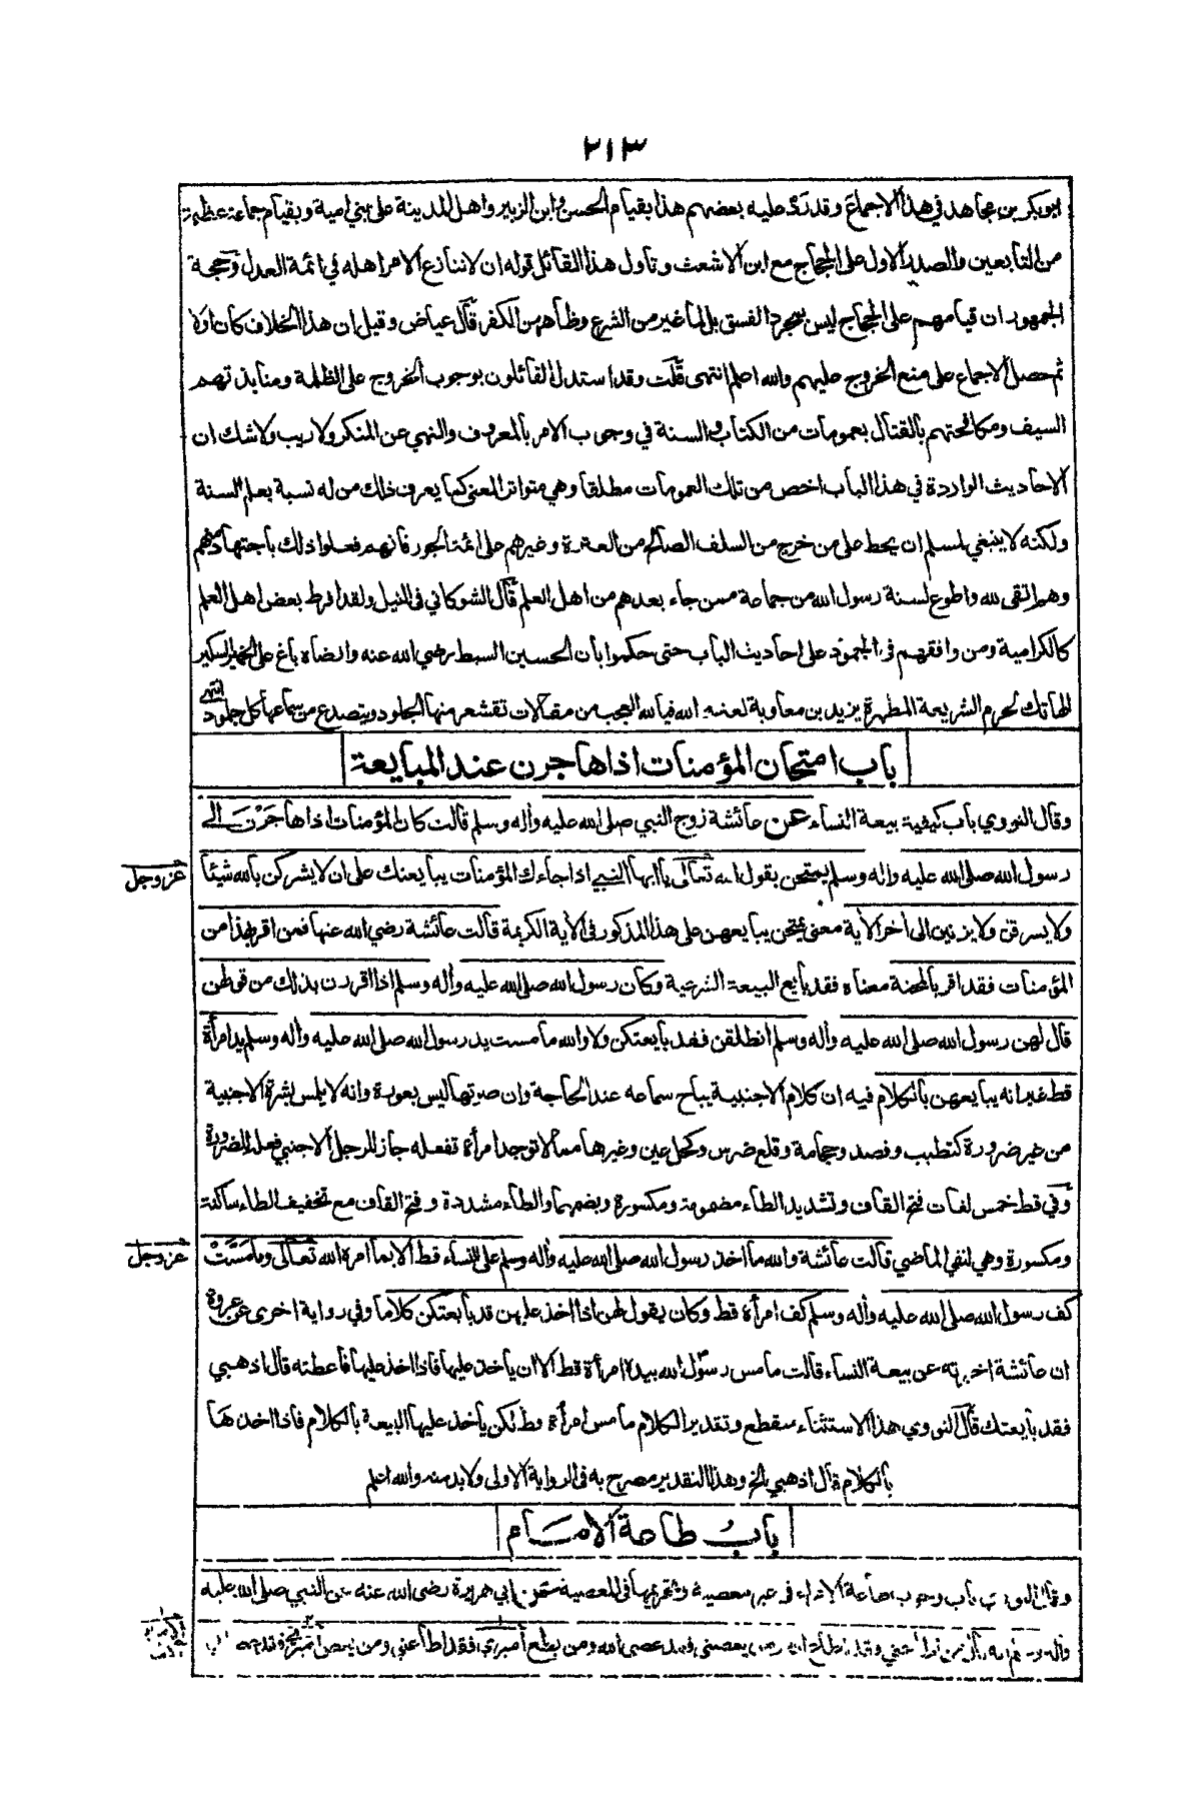 ٢١٣
ابوبكر بن مجاهد في هذا الاجماع وقد رد عليه بعضهم هذا بقيام الحسن وابن الزبير واهل المدينة على بني امية وبقيام جماعة عظيمة
من التابعين والصدر الاول على الحجاج مع ابن الاشعث وتاول هذا القائل قوله ان لا ننازع الامر اهله في ائمة العدل وحجة
الجمهور ان قيامهم على الحجاج ليس بمجرد الفسق بل لما غير من الشرع وظاهر من الكفر قال عياض وقيل ان هذا الخلاف كان اولا
ثم حصل الاجماع على منع الخروج عليهم والله اعلم انتهى قلت وقد استدل القائلون بوجوب الخروج على الظلمة ومنابذتهم
السيف ومكافحتهم بالقتال بعمومات من الكتاب والسنة في وجوب الامر بالمعروف والنهي عن المنكر ولا ريب ولا شك ان
الاحاديث الواردة في هذا الباب اخص من تلك العمومات مطلقا وهي متواتر المعنى كما يعرف ذلك من له نسبة بعلم السنة
ولكنه لا ينبغي لمسلم ان يحط على من خرج من السلف الصالح من العترة وغيرهم على ائمة الجور فانهم فعلوا ذلك باجتهاد منهم
وهم اتقى لله واطوع لسنة رسول الله من جماعة ممن جاء بعدهم من اهل العلم قال الشوكاني في النيل ولقد افرط بعض اهل العلم
كالكرامية ومن وافقهم في الجمود على احاديث الباب حتى حكموا بان الحسين السبط رضي الله عنه وارضاه باغ على الخمير السكير
الهاتك لحرم الشريعة المطهرة يزيد بن معاوية لعنه الله فيالله العجب من مقالات تقشعر منها الجلود ويتصدع من سماعها كل جلمود انتهى
باب امتحان المؤمنات اذا هاجرن عند المبايعة
وقال النووي باب كيفية بيعة النساء عن عائشة زوج النبي صلى الله عليه واله وسلم قالت كان المؤمنات اذا هاجرن الى
رسول الله صلى الله عليه واله وسلم يمتحن بقول الله تعالى يا ايها النبي اذا جاءك المؤمنات يبايعنك على ان لا يشركن بالله شيئا
عز وجل
ولا يسرقن ولا يزنين الى اخر الاية معنى يمتحن يبايعهن على هذا المذكور في الاية الكريمة قالت عائشة رضي الله عنها فمن اقر بهذا من
المؤمنات فقد اقر بالمحنة معناه فقد بايع البيعة الشرعية وكان رسول الله صلى الله عليه واله وسلم اذا اقررن بذلك من قولهن
قال لهن رسول الله صلى الله عليه واله وسلم انطلقن فقد بايعتكن ولا والله ما مست يد رسول الله صلى الله عليه واله وسلم يد امرأة
قط غير انه يبايعهن بالكلام فيه ان كلام الاجنبية يباح سماعه عند الحاجة وان صوتها ليس بعورة وانه لا يلمس بشرة الاجنبية
من غير ضرورة كتطبيب وفصد وحجامة وقلع ضرس وكحل عين وغيرها مما لا توجد امرأة تفعله جاز للرجل الاجنبي فعله للضرورة
وفي قط خمس لغات فتح القاف وتشديد الطاء مضمومة ومكسورة وبضمهما والطاء مشددة وفتح القاف مع تخفيف الطاء ساكنة
ومكسورة وهي لنفي الماضي قالت عائشة والله ما اخذ رسول الله صلى الله عليه واله وسلم على النساء قط الا بما امره الله تعالى وما مست
عز وجل
كف رسول الله صلى الله عليه واله وسلم كف امرأة قط وكان يقول لهن اذا اخذ عليهن قد بايعتكن كلاما وفي رواية اخرى عن عروة
ان عائشة اخبرته عن بيعة النساء قالت ما مس رسول الله بيده امرأة قط الا ان ياخذ عليها فاذا اخذ عليها فاعطته قال اذهبي
فقد بايعتك قال النووي هذا الاستثناء منقطع وتقدير الكلام ما مس امرأة قط لكن ياخذ عليها البيعة بالكلام فاذا اخذها
بالكلام قال اذهبي الخ وهذا التقدير مصرح به في الرواية الاولى ولا بد منه والله اعلم
باب طاعة الامام
وقال النووي باب وجوب طاعة الامراء في غير معصية وتحريمها في المعصية عن ابي هريرة رضي الله عنه عن النبي صلى الله عليه
ومن يطع اميري فقد اطاعني ومن يعص